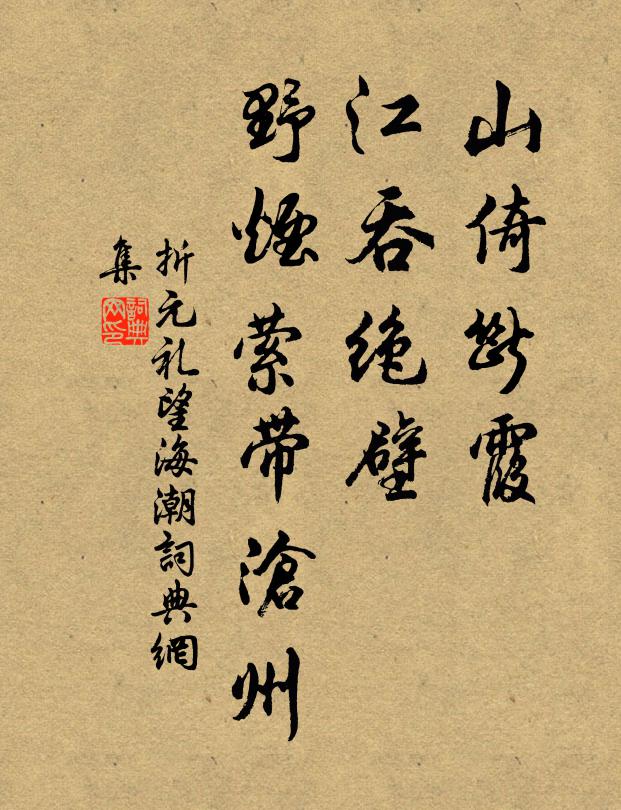 山倚斷霞
江吞绝壁
野煙萦带滄州
折元礼望海潮詞典網
集
詞典網印